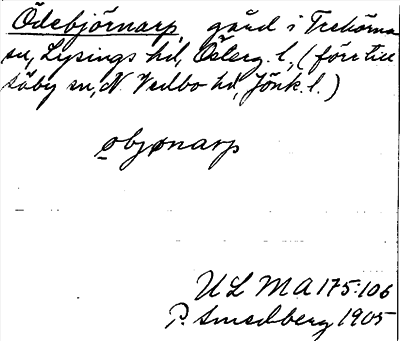 Ödebjörnarp, gård i Trehörna
sn, Lysings hd, Österg. l., (före till
säby sn, N. Vedbo hd, Jönk. l.)
øbjønarp
ULMA 175:106
P. Smedberg 1905